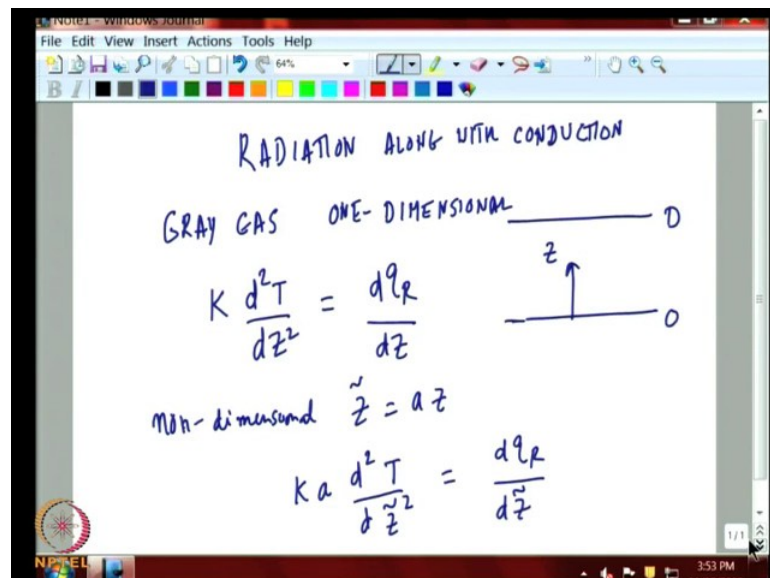 Note1 - Windows Journal
File Edit View Insert Actions Tools Help
64%
B I
RADIATION ALONG WITH CONDUCTION
GRAY GAS ONE-DIMENSIONAL D
z
K d²T/dz² = dqR/dz
O
non-dimensional z̃ = a z
K a d²T/dz̃² = dqR/dz̃
1/1
NPTEL
3:53 PM